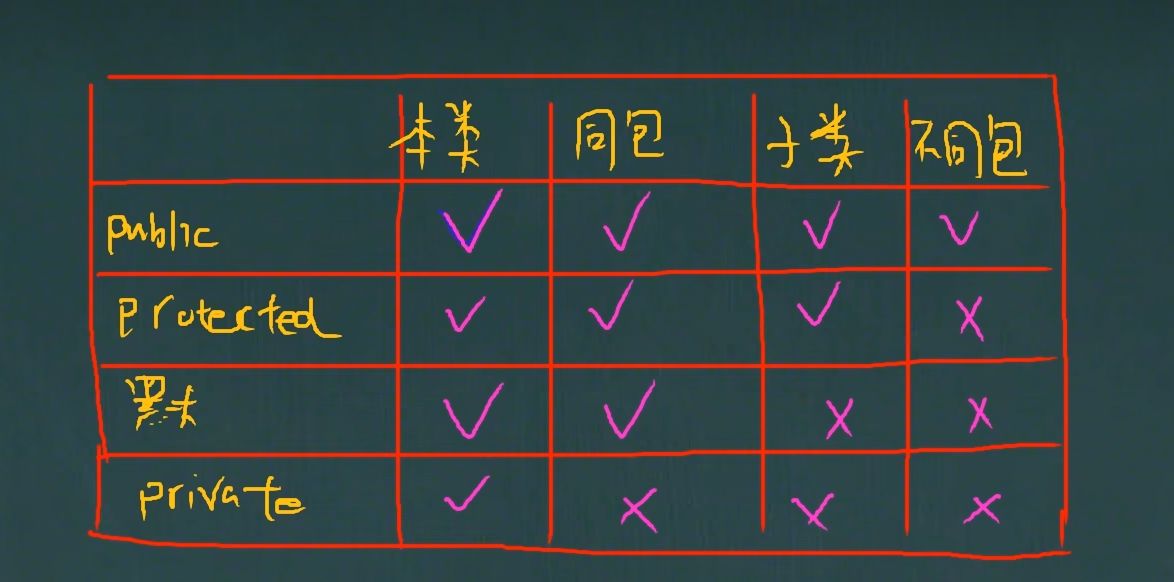 本类 同包 子类 不同包
public √ √ √ √
protected √ √ √ ×
默认 √ √ × ×
private √ × × ×